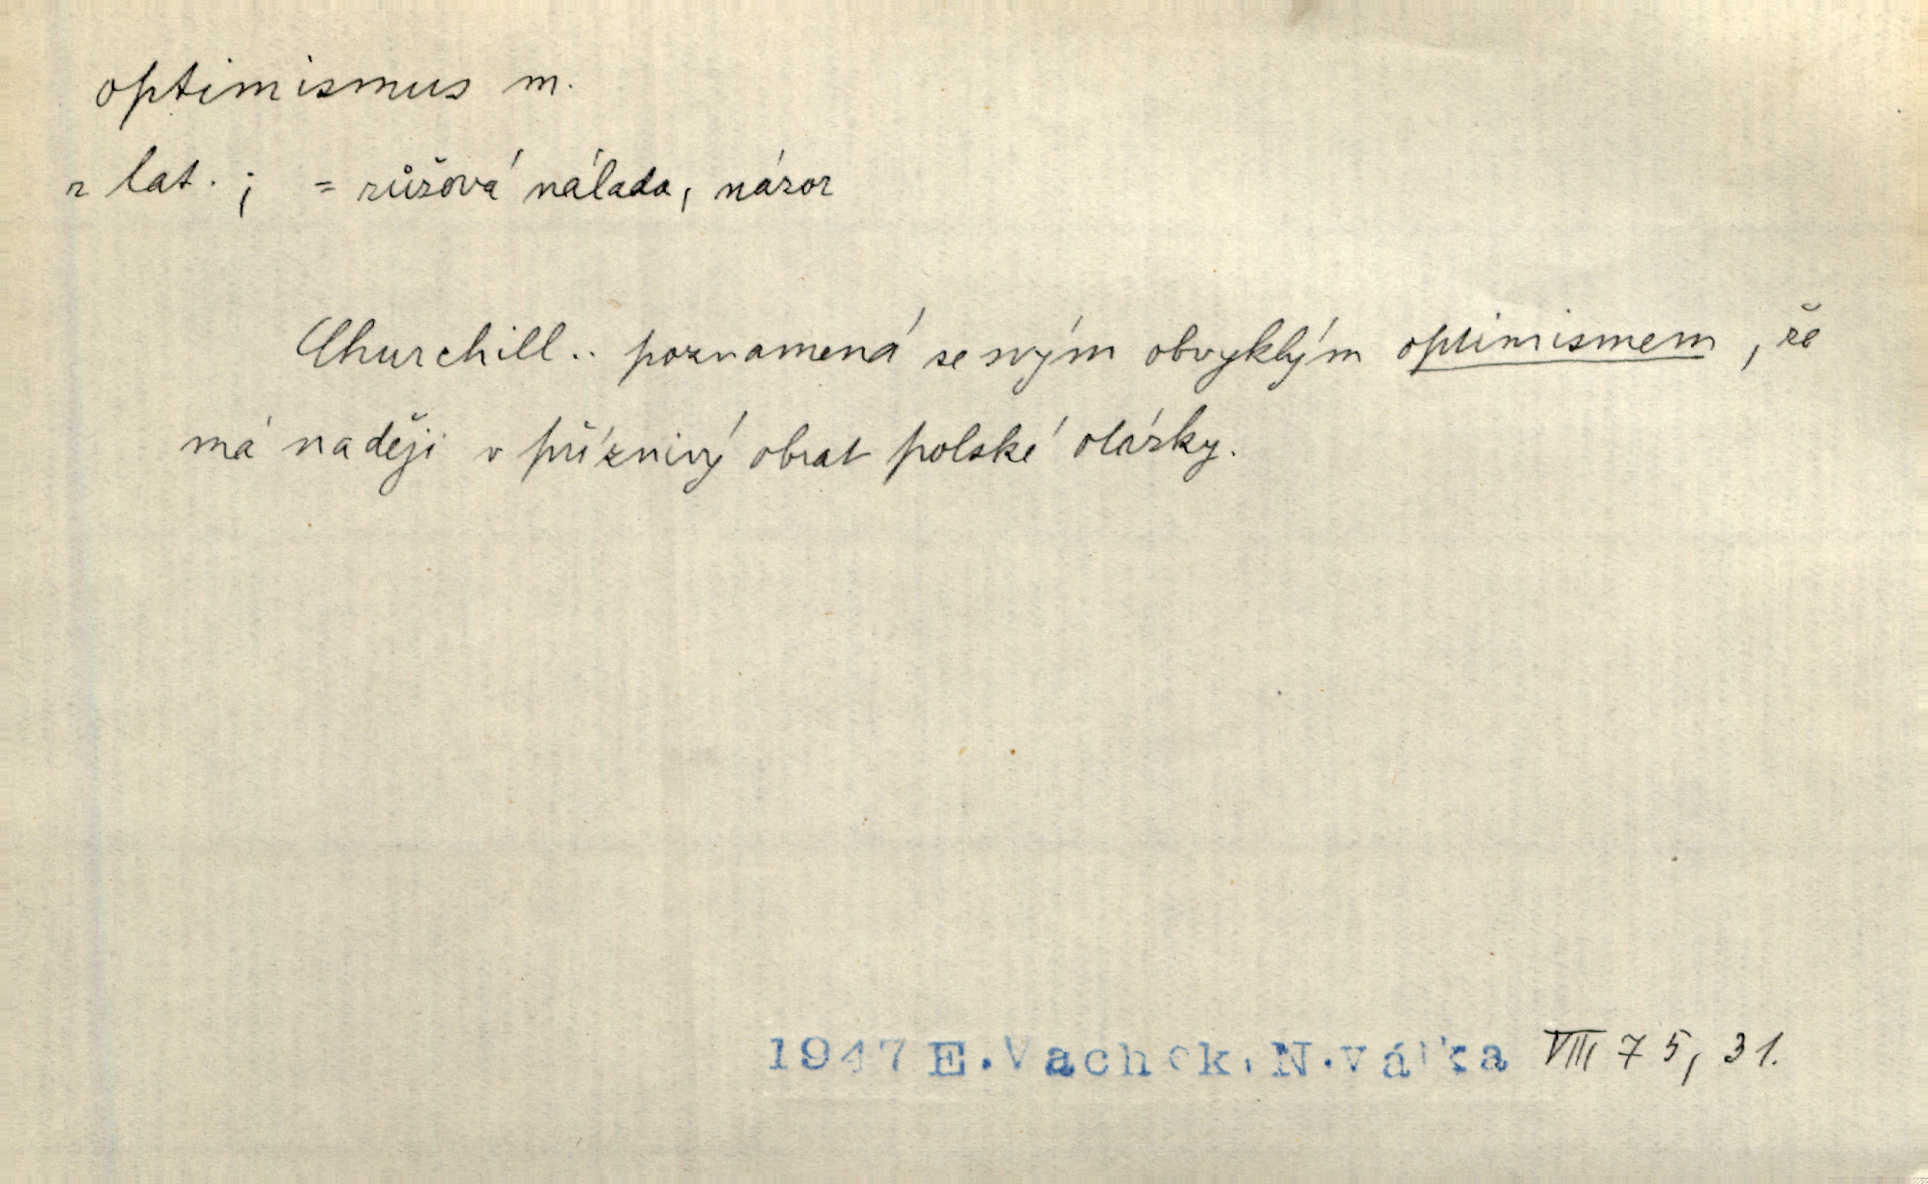 optimismus m.
z lat. ; = růžová nálada, názor
Churchill.. poznamená se svým obvyklým optimismem, že
má naději v příznivý obrat polské otázky.
1947 E. Vachek, N. válka VIII 75, 31.